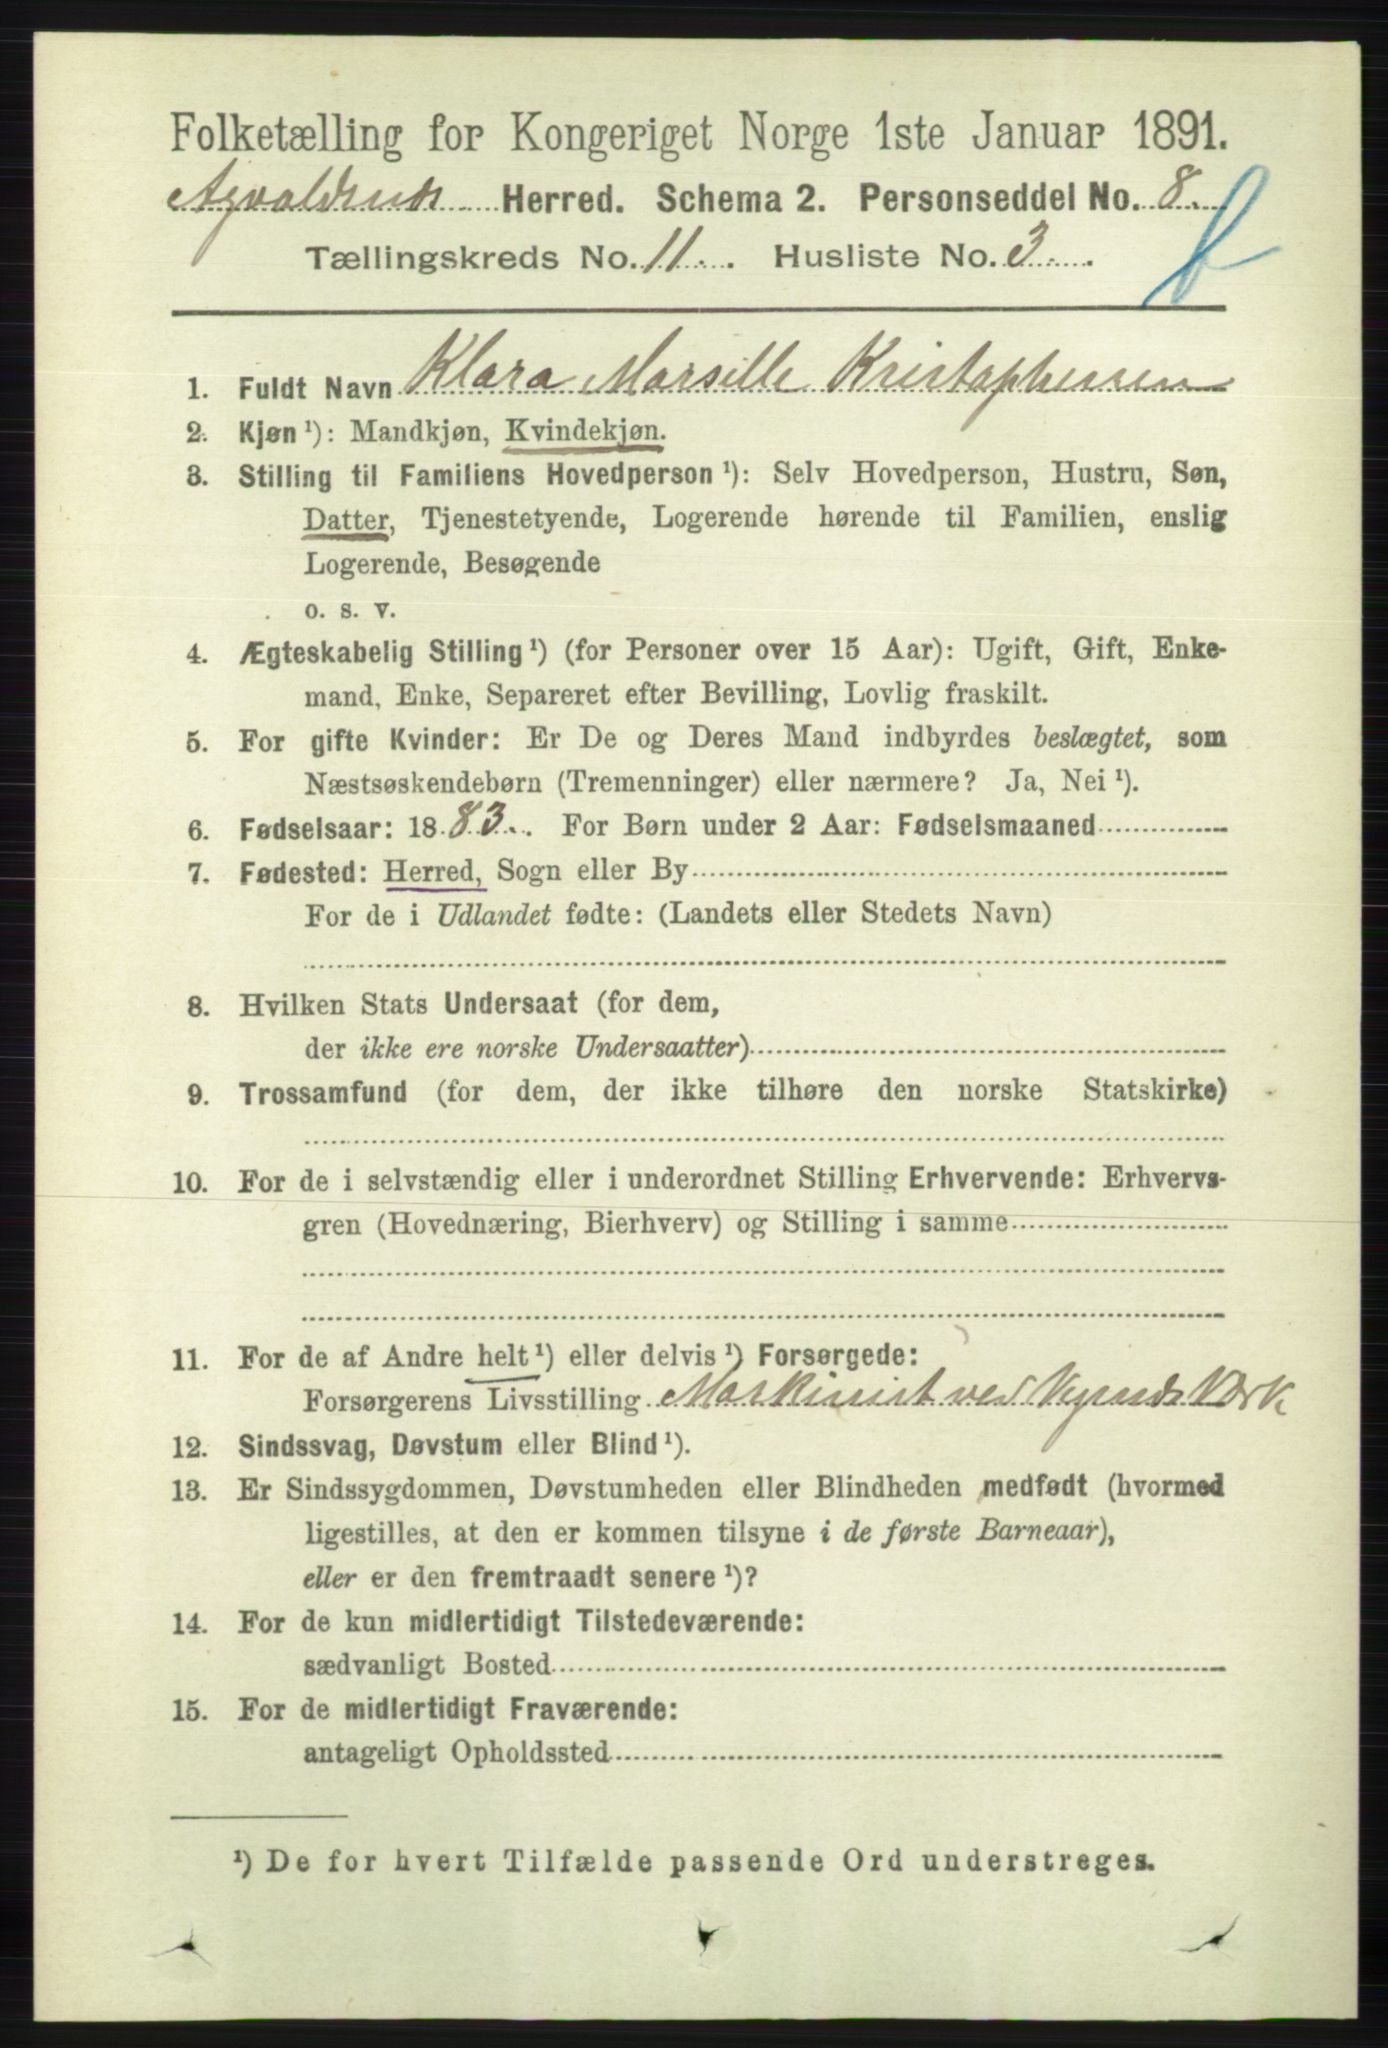 Folketælling for Kongeriget Norge 1ste Januar 1891.
Herred. Schema 2. Personseddel No. 8.
Tællingskreds No. 11. Husliste No. 3.
1. Fuldt Navn Klara Marsille Kristophersen
2. Kjøn ¹): Mandkjøn, Kvindekjøn.
3. Stilling til Familiens Hovedperson ¹): Selv Hovedperson, Hustru, Søn,
Datter, Tjenestetyende, Logerende hørende til Familien, enslig
Logerende, Besøgende
o. s. v.
4. Ægteskabelig Stilling ¹) (for Personer over 15 Aar): Ugift, Gift, Enke-
mand, Enke, Separeret efter Bevilling, Lovlig fraskilt.
5. For gifte Kvinder: Er De og Deres Mand indbyrdes beslægtet, som
Næstsøskendebørn (Tremenninger) eller nærmere? Ja, Nei ¹).
6. Fødselsaar: 1883. For Børn under 2 Aar: Fødselsmaaned
7. Fødested: Herred, Sogn eller By
For de i Udlandet fødte: (Landets eller Stedets Navn)
8. Hvilken Stats Undersaat (for dem,
der ikke ere norske Undersaatter)
9. Trossamfund (for dem, der ikke tilhøre den norske Statskirke)
10. For de i selvstændig eller i underordnet Stilling Erhvervende: Erhvervs-
gren (Hovednæring, Bierhverv) og Stilling i samme
11. For de af Andre helt ¹) eller delvis ¹) Forsørgede:
Forsørgerens Livsstilling Maskinist ved Værk
12. Sindssvag, Døvstum eller Blind ¹).
13. Er Sindssygdommen, Døvstumheden eller Blindheden medfødt (hvormed
ligestilles, at den er kommen tilsyne i de første Barneaar),
eller er den fremtraadt senere ¹)?
14. For de kun midlertidigt Tilstedeværende:
sædvanligt Bosted
15. For de midlertidigt Fraværende:
antageligt Opholdssted
¹) De for hvert Tilfælde passende Ord understreges.